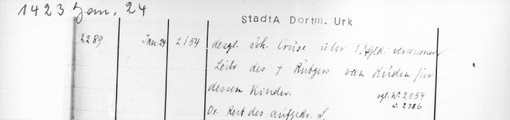 1423 Jan. 24
StadtA Dortm. Urk
2289 Jan 24 2154 desgl. Joh. Cruse über
Leib des † Rutgers van Rüden für
dessen Kinder.
vgl. Nº 2054
u. 2386
Or. Rest des aufgedr. S.